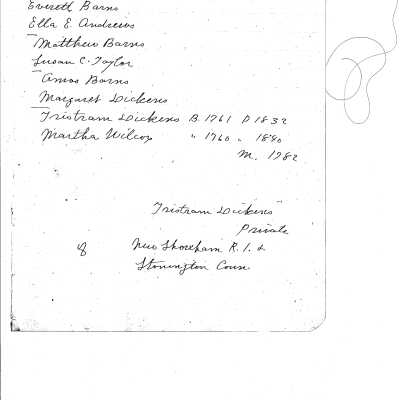 Everett Barns
Ella E. Andrews
Matthew Barns
Susan C. Taylor
Amos Barns
Margaret Dickens
Tristram Dickens B. 1761 D 1832
Martha Wilcox " 1760 " 1840
M. 1782
Tristram Dickens
Private
of New Shoreham R. I. &
Stonington Conn